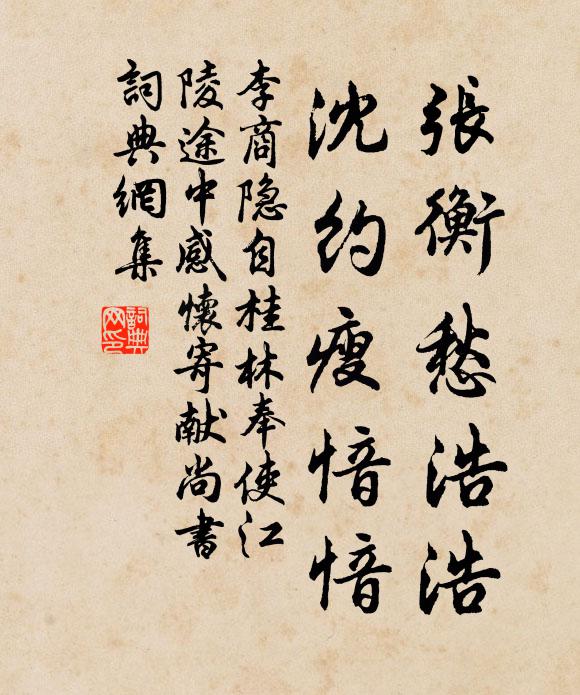 張衡愁浩浩
沈約瘦愔愔
李商隐自桂林奉使江
陵途中感懷寄献尚書
詞典網集
詞典
网印